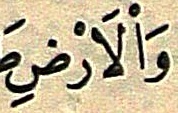 وَاْلَارْضِ